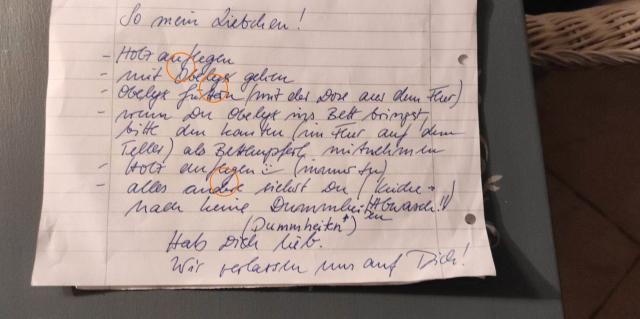 So mein Liebchen!
- Holz auflegen
- mit Obelyx gehen
- Obelyx füttern (mit der Dose aus dem Flur)
- wenn Du Obelyx ins Bett bringst,
bitte den Knochen (im Flur auf dem
Teller) als Betthupferl mitnehmen
- Holz auflegen (immer
- alles andere siehst Du (Küche
mach keine Dummheit Abwasch!!)
(Dummheiten*)
Hab Dich lieb.
Wir verlassen uns auf Dich!